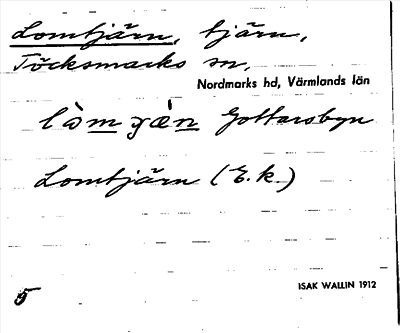 Lomtjärn, tjärn,
Töcksmarks sn.
Nordmarks hd, Värmlands län
Gottarsbyn
Lomtjärn (E.k.)
5
ISAK WALLIN 1912